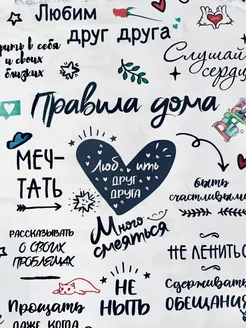 Любим
друг друга
рить в себя
и своих
близких
Слушай
сердц
Правила дома
МЕЧ-
ТАТЬ
Люб ить
ДРУГ
ДРУГА
быть
счастливыми
РАССКАЗЫВАТЬ
О СВОИХ
ПРОБЛЕМАХ
Много
смеяться
НЕ ЛЕНИТЬС
НЕ
НЫТЬ
Сдерживать
ОБЕЩАНИ
Прощать
ДАЖЕ КОГДА